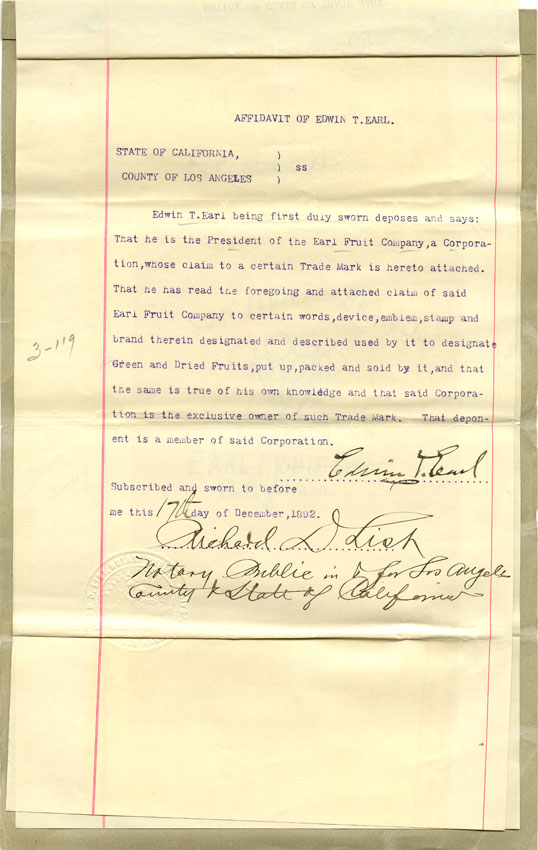 AFFIDAVIT OF EDWIN T.EARL.
STATE OF CALIFORNIA, )
) ss
COUNTY OF LOS ANGELES )
Edwin T.Earl being first duly sworn deposes and says:
That he is the President of the Earl Fruit Company,a Corpora-
tion,whose claim to a certain Trade Mark is hereto attached.
That he has read the foregoing and attached claim of said
Earl Fruit Company to certain words,device,emblem,stamp and
brand therein designated and described used by it to designate
3-119
Green and Dried Fruits,put up,packed and sold by it,and that
the same is true of his own knowledge and that said Corpora-
tion is the exclusive owner of such Trade Mark. That depon-
ent is a member of said Corporation.
Edwin T. Earl
Subscribed and sworn to before
me this 17th day of December,1892.
Richard D List
Notary Public in & for Los Angeles
County & State of California